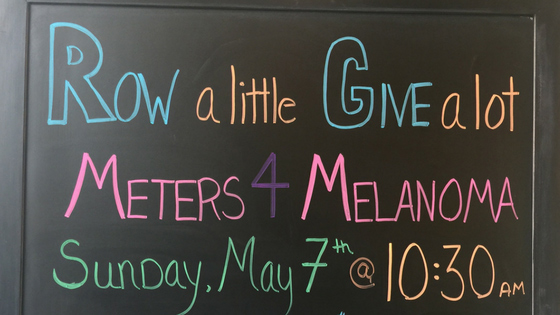 Row a little Give a lot
Meters 4 Melanoma
Sunday, May 7th @ 10:30 AM